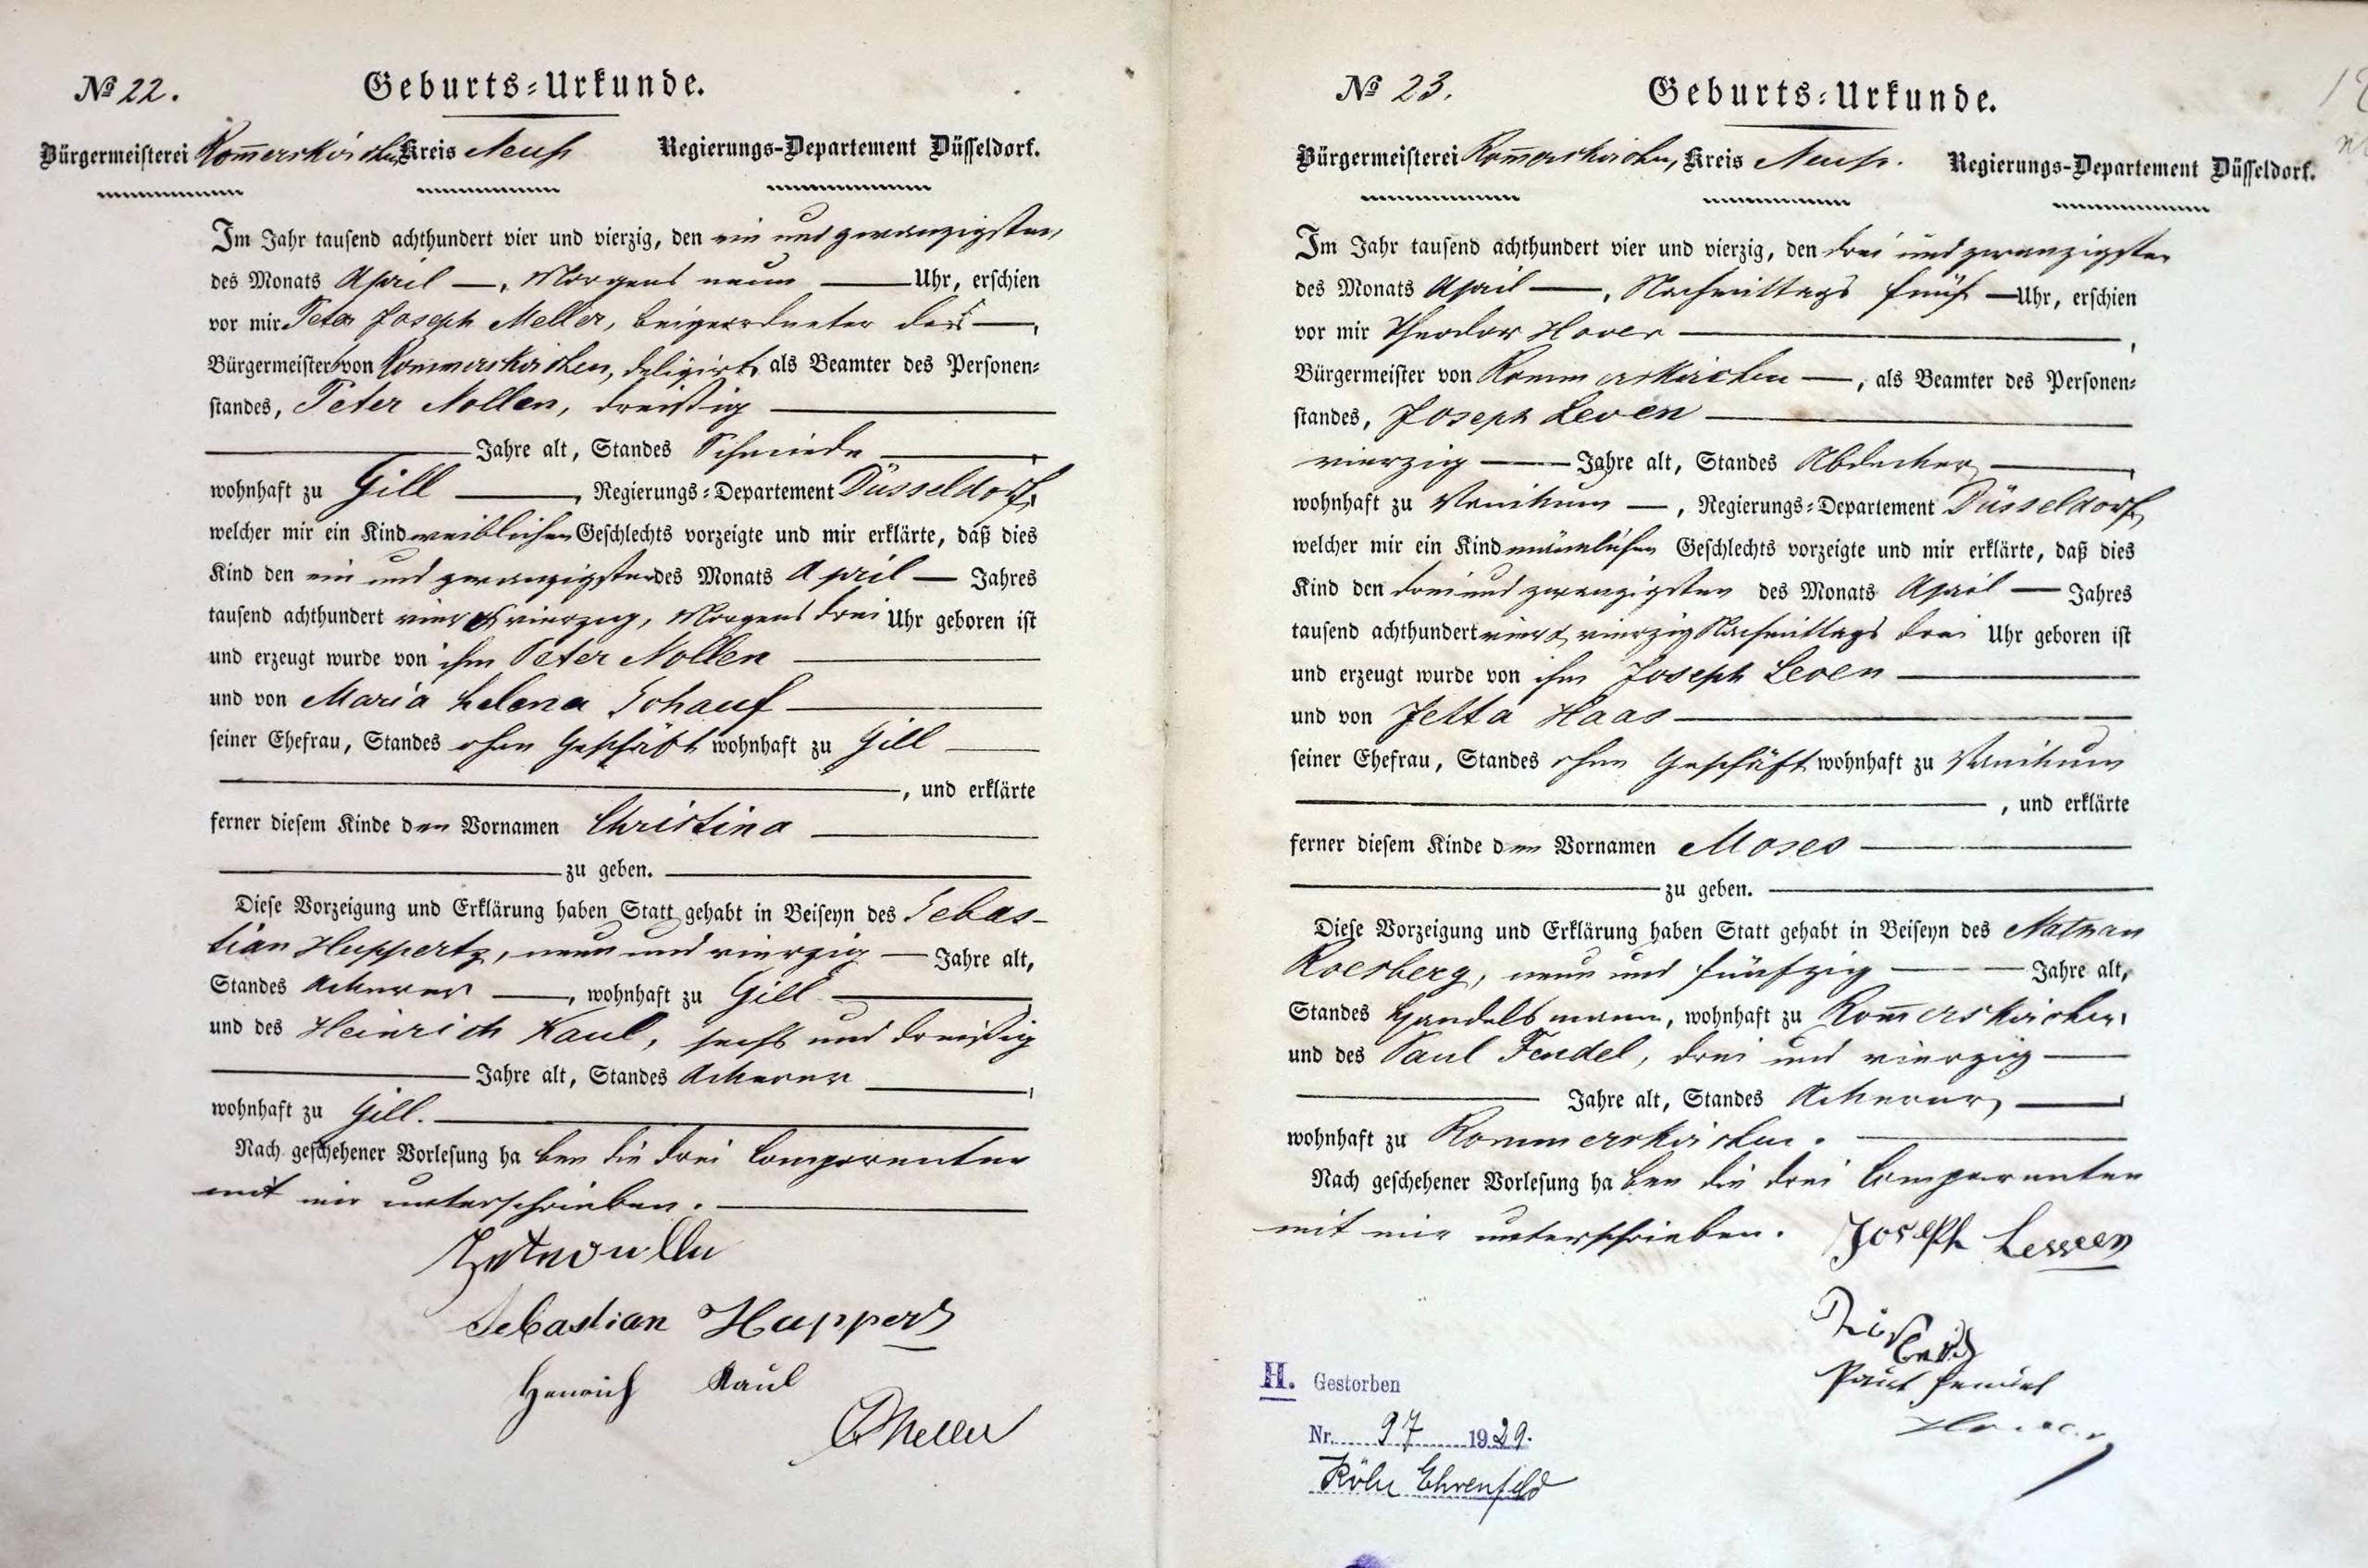 № 22.
Geburts-Urkunde.
Bürgermeisterei Rom̄erskirchen Kreis Neuß Regierungs-Departement Düsseldorf.
Im Jahr tausend achthundert vier und vierzig, den ein und zwanzigsten
des Monats April —, Morgens neun — Uhr, erschien
vor mir Peter Joseph Meller, beigeordneter des —,
Bürgermeisters von Rommerskirchen, deligirt, als Beamter des Personen-
standes, Peter Nollen, dreißig —
— Jahre alt, Standes Schmiede —,
wohnhaft zu Gill —, Regierungs-Departement Düsseldorf,
welcher mir ein Kind weiblichen Geschlechts vorzeigte und mir erklärte, daß dies
Kind den ein und zwanzigsten des Monats April — Jahres
tausend achthundert vier & vierzig, Morgens drei Uhr geboren ist
und erzeugt wurde von ihm Peter Nollen —
und von Maria Helena Schauf —
seiner Ehefrau, Standes ohne Geschäft wohnhaft zu Gill —
—, und erklärte
ferner diesem Kinde den Vornamen Christina —
— zu geben. —
Diese Vorzeigung und Erklärung haben Statt gehabt in Beiseyn des Sebas-
tian Huppertz, neun und vierzig — Jahre alt,
Standes Ackerer —, wohnhaft zu Gill —
und des Heinrich Kaul, sechs und dreißig
— Jahre alt, Standes Ackerer —,
wohnhaft zu Gill. —
Nach geschehener Vorlesung haben die drei Comparenten
mit mir unterschrieben. —
Sebastian Huppertz
Henrich Kaul
Meller
№ 23.
Geburts-Urkunde.
Bürgermeisterei Rom̄erskirchen, Kreis Neuß. Regierungs-Departement Düsseldorf.
Im Jahr tausend achthundert vier und vierzig, den drei und zwanzigsten
des Monats April —, Nachmittags fünf — Uhr, erschien
vor mir Theodor Hover —,
Bürgermeister von Rommerskirchen —, als Beamter des Personen-
standes, Joseph Leven —
vierzig — Jahre alt, Standes Abdecker —,
wohnhaft zu Vanikum —, Regierungs-Departement Düsseldorf,
welcher mir ein Kind männlichen Geschlechts vorzeigte und mir erklärte, daß dies
Kind den drei und zwanzigsten des Monats April — Jahres
tausend achthundert vier & vierzig Nachmittags drei Uhr geboren ist
und erzeugt wurde von ihm Joseph Leven —
und von Jetta Haas —
seiner Ehefrau, Standes ohne Geschäft wohnhaft zu Vanikum
—, und erklärte
ferner diesem Kinde den Vornamen Moses —
— zu geben. —
Diese Vorzeigung und Erklärung haben Statt gehabt in Beiseyn des Nathan
Roesberg, neun und fünfzig — Jahre alt,
Standes Handelsmann, wohnhaft zu Rom̄erskirchen,
und des Paul Fendel, drei und vierzig —
— Jahre alt, Standes Ackerer, —
wohnhaft zu Rommerskirchen. —
Nach geschehener Vorlesung haben die drei Comparenten
mit mir unterschrieben. Joseph Leween
Paul Fendel
H. Gestorben
Nr. 97 1929.
Köln Ehrenfeld